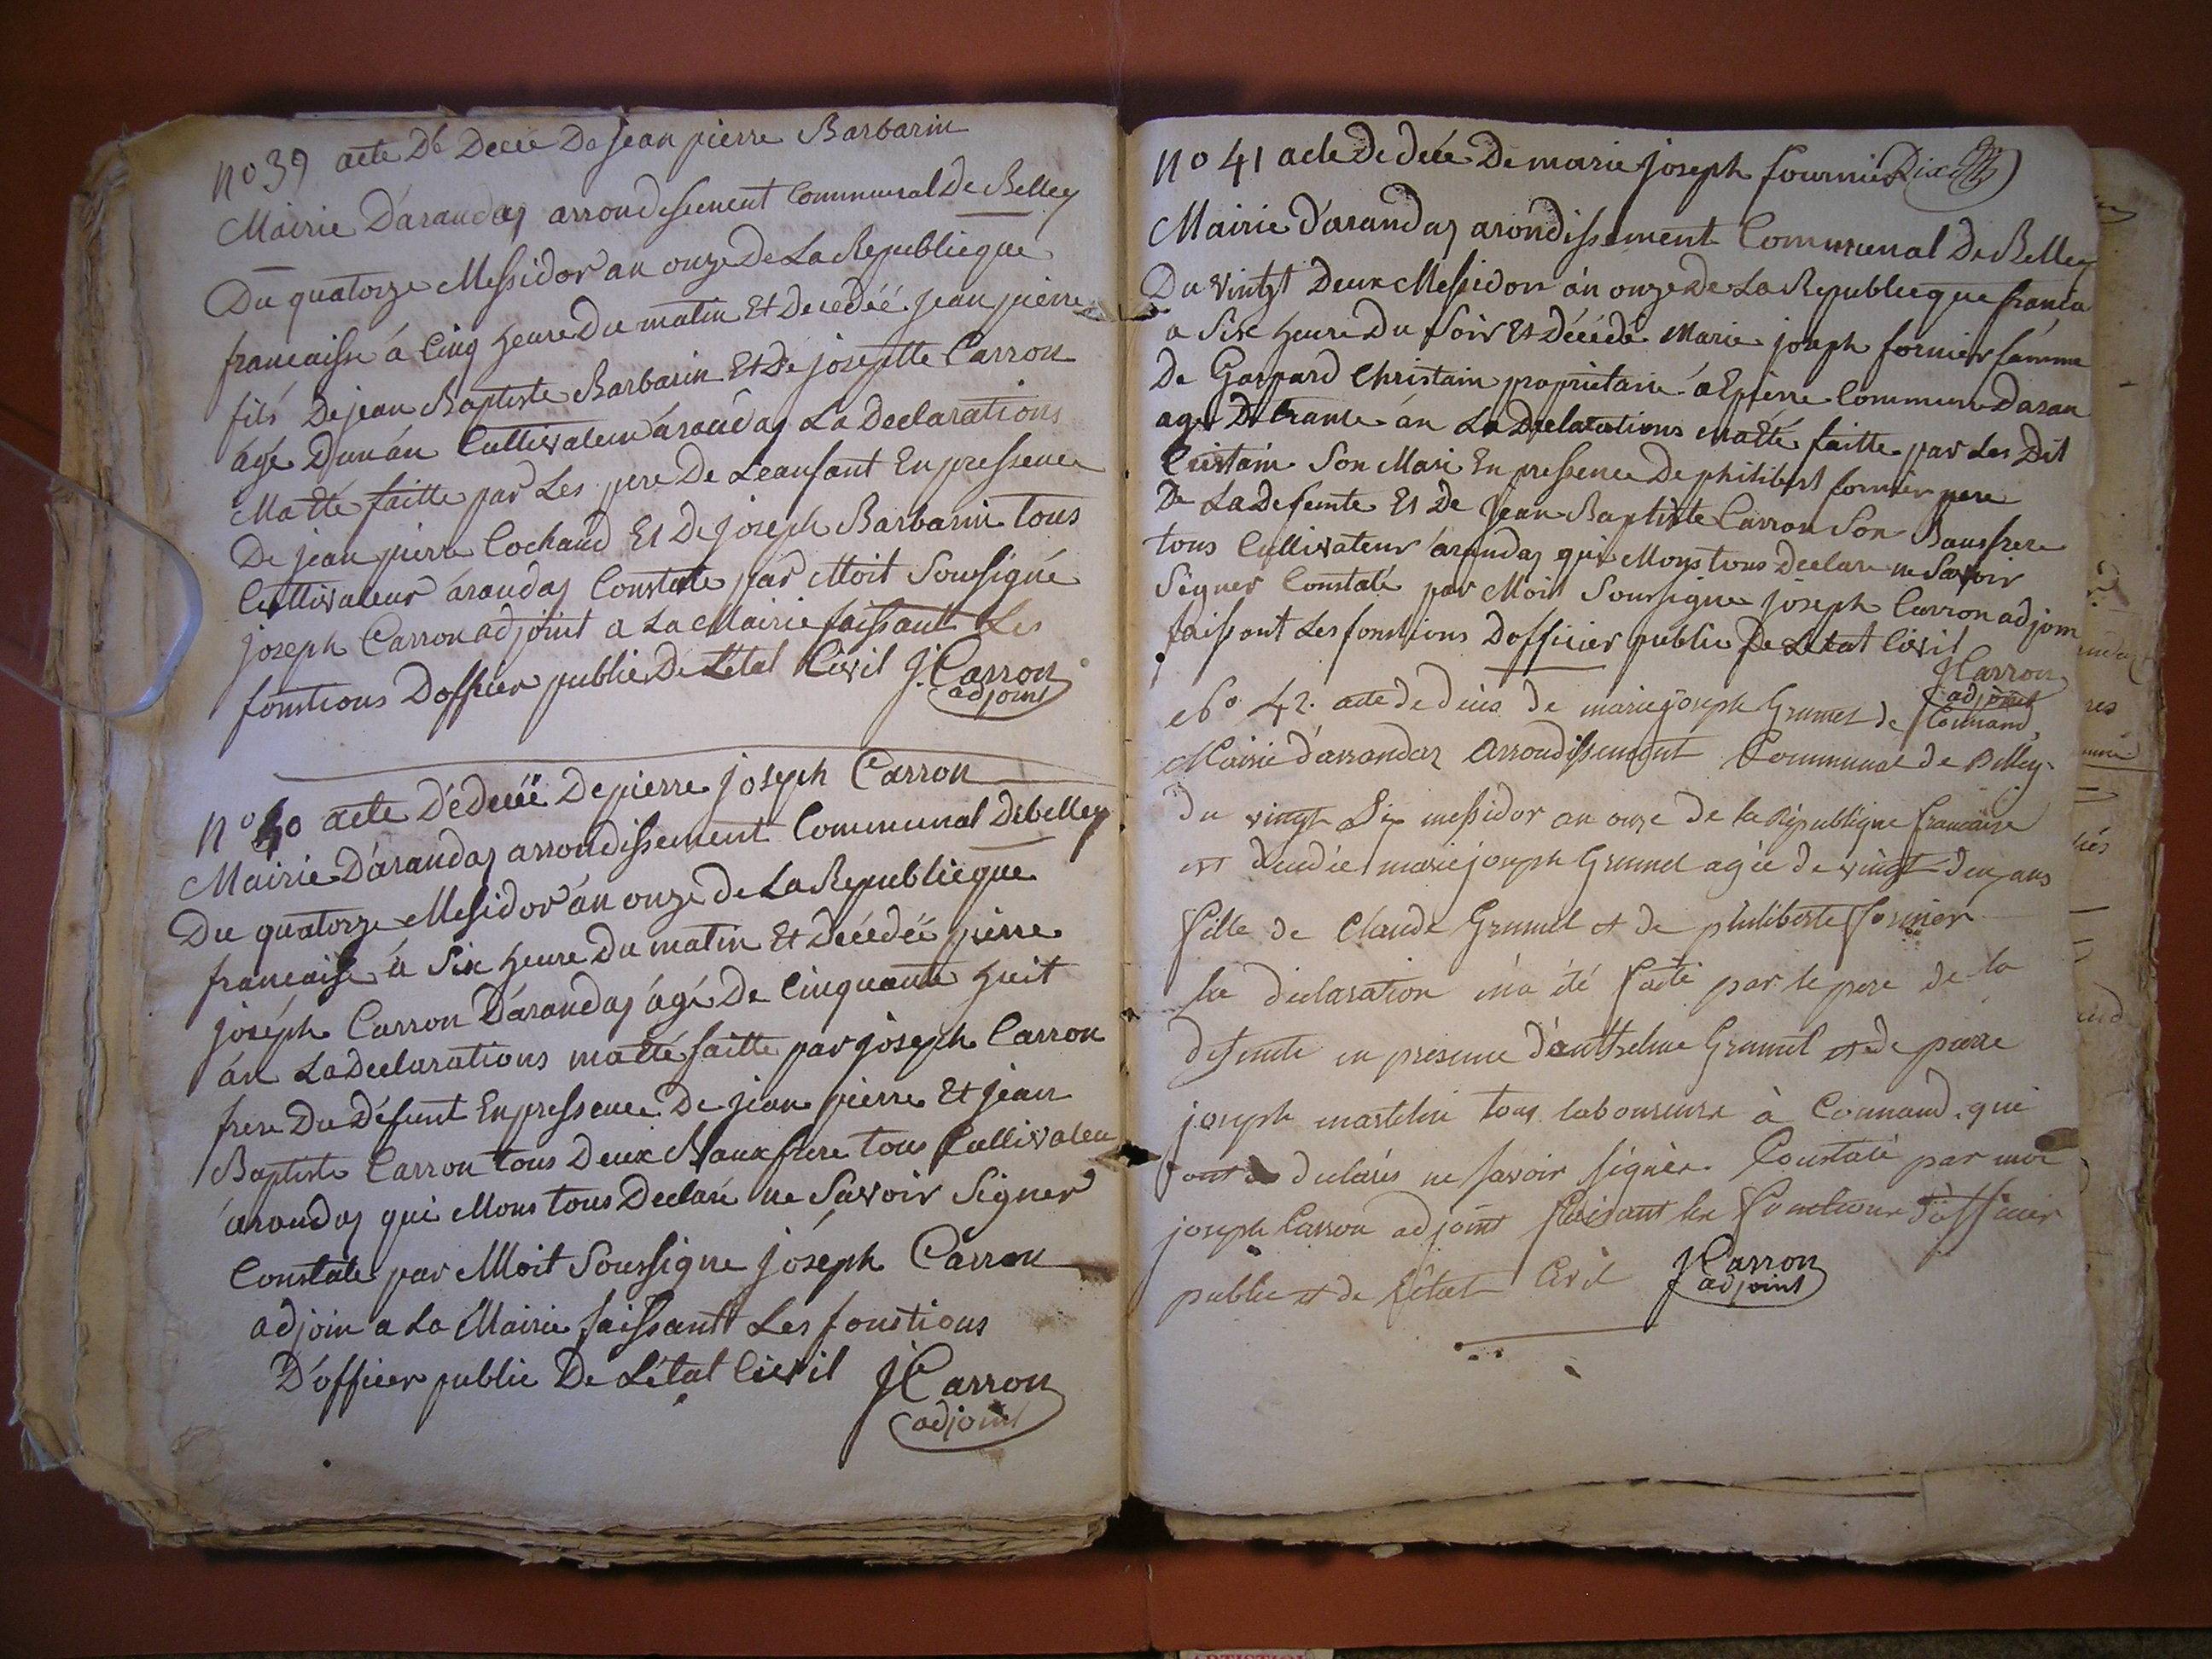 no 39 acte De Decée De jean pierre Barbarin
Mairie D'arandas arrondissement Communal De Belley
Du quatorze Messidor an onze De La Republicque
francaisse á Cinq heure Du matin Et Decedéé jean pierre
fils De jean Baptiste Barbarin Et De josephtte Carron
ágé Dun án Cultivateur árandas La Declarations
Matté faitte par Les pere De Leanfant En pressence
De jean pierre Cochaud Et De joseph Barbarin tous
Cultivateur árandas Constate par Moit Soussigné
joseph Carron adjoint a La Mairie faissant Les
fonstions Dofficier public De L'état Civil J. Carron
adjoint
no 40 acte Dédecéé De pierre joseph Carron
Mairie D'arandas arrondissement Communal De belley
Du quatorze Messidor án onze de La Republicque
francaisse á Six heure Du matin Et Décédéé pierre
joséph Carron D'arandas ágé De Cinquante huit
án La Declarations matté faitte par joseph Carron
frere Du Défunt En pressence De jean pierre Et jean
Baptiste Carron tous Deux Baux frere tous Cultivateu
árandas qui Mons tous Declaré ne Savoir Signer
Constate par Moit Soussigne joséph Carron
adjoin a La Mairie faissant Les fonstions
D'officier public De L'état Civil J Carron
adjoint
no 41 acte De decée De marie joseph fournier
Mairie d'arandas arondissement Communal De Belley
Du vintgt Deux Messidor án onze De La Republicque franca
a Six heure Du Soir Et Décédé Marie joseph fornier fámme
De Gaspard Christain proprietaire á Epierre Commune Daran
age De trante án La Declarations matté faitte par Les Dit
Cristain Son Mari En pressence De philibert fornier pere
De La Defeunte Et De Jean Baptiste Carron Son Baufrere
tous Cultivateur árandas qui Mons tous Declare ne Savoir
Signer Constaté par Moit Soussigne joseph Carron adjoin
faissant Les fonstions Dofficier public De L'etat Civil
J Carron
adjoint
No 42. acte de décés de marie joseph Grumet de Counand
Mairie d'arrandas Arrondissement Communal de Belley.
du vingt Six messidor an onze de la République francaise
est décédée marie joseph Grumet agée de vingt deux ans
fille de Claude Grumel et de philiberte fornier
la déclaration m'a été faite par le pere de la
defunte en presence d'anthelme Grumel et de pierre
joseph martelin tous laboureurs à Counand. qui
ont declarés ne savoir signèr. Constaté par moi
joseph Carron adjoint faisant les fonctions d'officier
public et de l'état Civil J Carron
adjoint